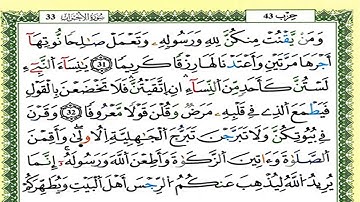 حزب 43 سُورَةُ الأحْزَاب 33
وَمَنْ يَّقْنُتْ مِنكُنَّ لِلهِ وَرَسُولِهِۦ وَتَعْمَلْ صَٰلِحاً نُّوتِهَآ
أَجْرَهَا مَرَّتَيْنِ وَأَعْتَدْنَا لَهَا رِزْقاً كَرِيماً 31 يَٰنِسَآءَ اَ۬لنَّبِيٓءِ
لَسْتُنَّ كَأَحَدٍ مِّنَ اَ۬لنِّسَآءِ انِ اِ۪تَّقَيْتُنَّ فَلَا تَخْضَعْنَ بِالْقَوْلِ
فَيَطْمَعَ اَ۬لذِے فِے قَلْبِهِۦ مَرَضٌ وَقُلْنَ قَوْلاً مَّعْرُوفاً 32 وَقَرْنَ
فِے بُيُوتِكُنَّ وَلَا تَبَرَّجْنَ تَبَرُّجَ اَ۬لْجَٰهِلِيَّةِ اِ۬لُاولَىٰ وَأَقِمْنَ
اَ۬لصَّلَوٰةَ وَءَاتِينَ اَ۬لزَّكَوٰةَ وَأَطِعْنَ اَ۬للَّهَ وَرَسُولَهُۥٓ إِنَّمَا
يُرِيدُ اُ۬للَّهُ لِيُذْهِبَ عَنكُمُ اُ۬لرِّجْسَ أَهْلَ اَ۬لْبَيْتِ وَيُطَهِّرَكُمْ